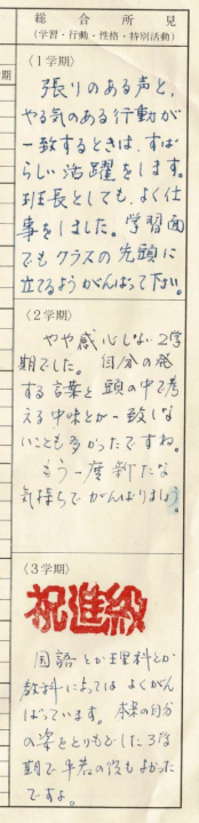 総合所見
(学習・行動・性格・特別活動)
期
〈1学期〉
張りのある声と、
やる気のある行動が
一致するときは、すば
らしい活躍をします。
班長としても、よく仕
事をしました。学習面
でもクラスの先頭に
立てるようがんばって下さい。
〈2学期〉
やや感心しない2学
期でした。自分の発
する言葉と頭の中で考
える中味とが一致しな
いことも多かったですね。
もう一度新たな
気持ちでがんばりましょう。
〈3学期〉
祝進級
国語とか理科とか
教科によってはよくがん
ばっています。本来の自分
の姿をとりもどした3学
期で牛若の役もよかった
ですよ。